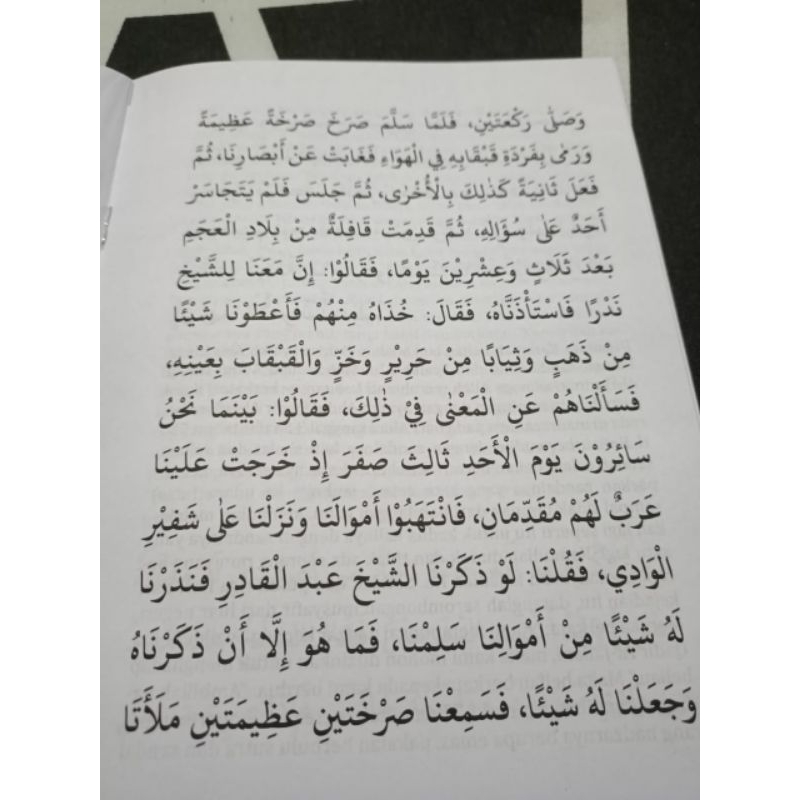 وَصَلَّى رَكْعَتَيْنِ، فَلَمَّا سَلَّمَ صَرَخَ صَرْخَةً عَظِيمَةً
وَرَمٰى بِفَرْدَةِ قَبْقَابِهِ فِي الْهَوَاءِ فَغَابَتْ عَنْ أَبْصَارِنَا، ثُمَّ
فَعَلَ ثَانِيَةً كَذٰلِكَ بِالْأُخْرٰى، ثُمَّ جَلَسَ فَلَمْ يَتَجَاسَرْ
أَحَدٌ عَلٰى سُؤَالِهِ، ثُمَّ قَدِمَتْ قَافِلَةٌ مِنْ بِلَادِ الْعَجَمِ
بَعْدَ ثَلَاثٍ وَعِشْرِيْنَ يَوْمًا، فَقَالُوْا: إِنَّ مَعَنَا لِلشَّيْخِ
نَذْرًا فَاسْتَأْذَنَّاهُ، فَقَالَ: خُذَاهُ مِنْهُمْ فَأَعْطَوْنَا شَيْئًا
مِنْ ذَهَبٍ وَثِيَابًا مِنْ حَرِيْرٍ وَخَزٍّ وَالْقَبْقَابَ بِعَيْنِهِ،
فَسَأَلْنَاهُمْ عَنِ الْمَعْنٰى فِيْ ذٰلِكَ، فَقَالُوْا: بَيْنَمَا نَحْنُ
سَائِرُوْنَ يَوْمَ الْأَحَدِ ثَالِثَ صَفَرَ إِذْ خَرَجَتْ عَلَيْنَا
عَرَبٌ لَهُمْ مُقَدِّمَانِ، فَانْتَهَبُوْا أَمْوَالَنَا وَنَزَلْنَا عَلٰى شَفِيْرِ
الْوَادِي، فَقُلْنَا: لَوْ ذَكَرْنَا الشَّيْخَ عَبْدَ الْقَادِرِ فَنَذَرْنَا
لَهُ شَيْئًا مِنْ أَمْوَالِنَا سَلِمْنَا، فَمَا هُوَ إِلَّا أَنْ ذَكَرْنَاهُ
وَجَعَلْنَا لَهُ شَيْئًا، فَسَمِعْنَا صَرْخَتَيْنِ عَظِيمَتَيْنِ مَلَأَتَا